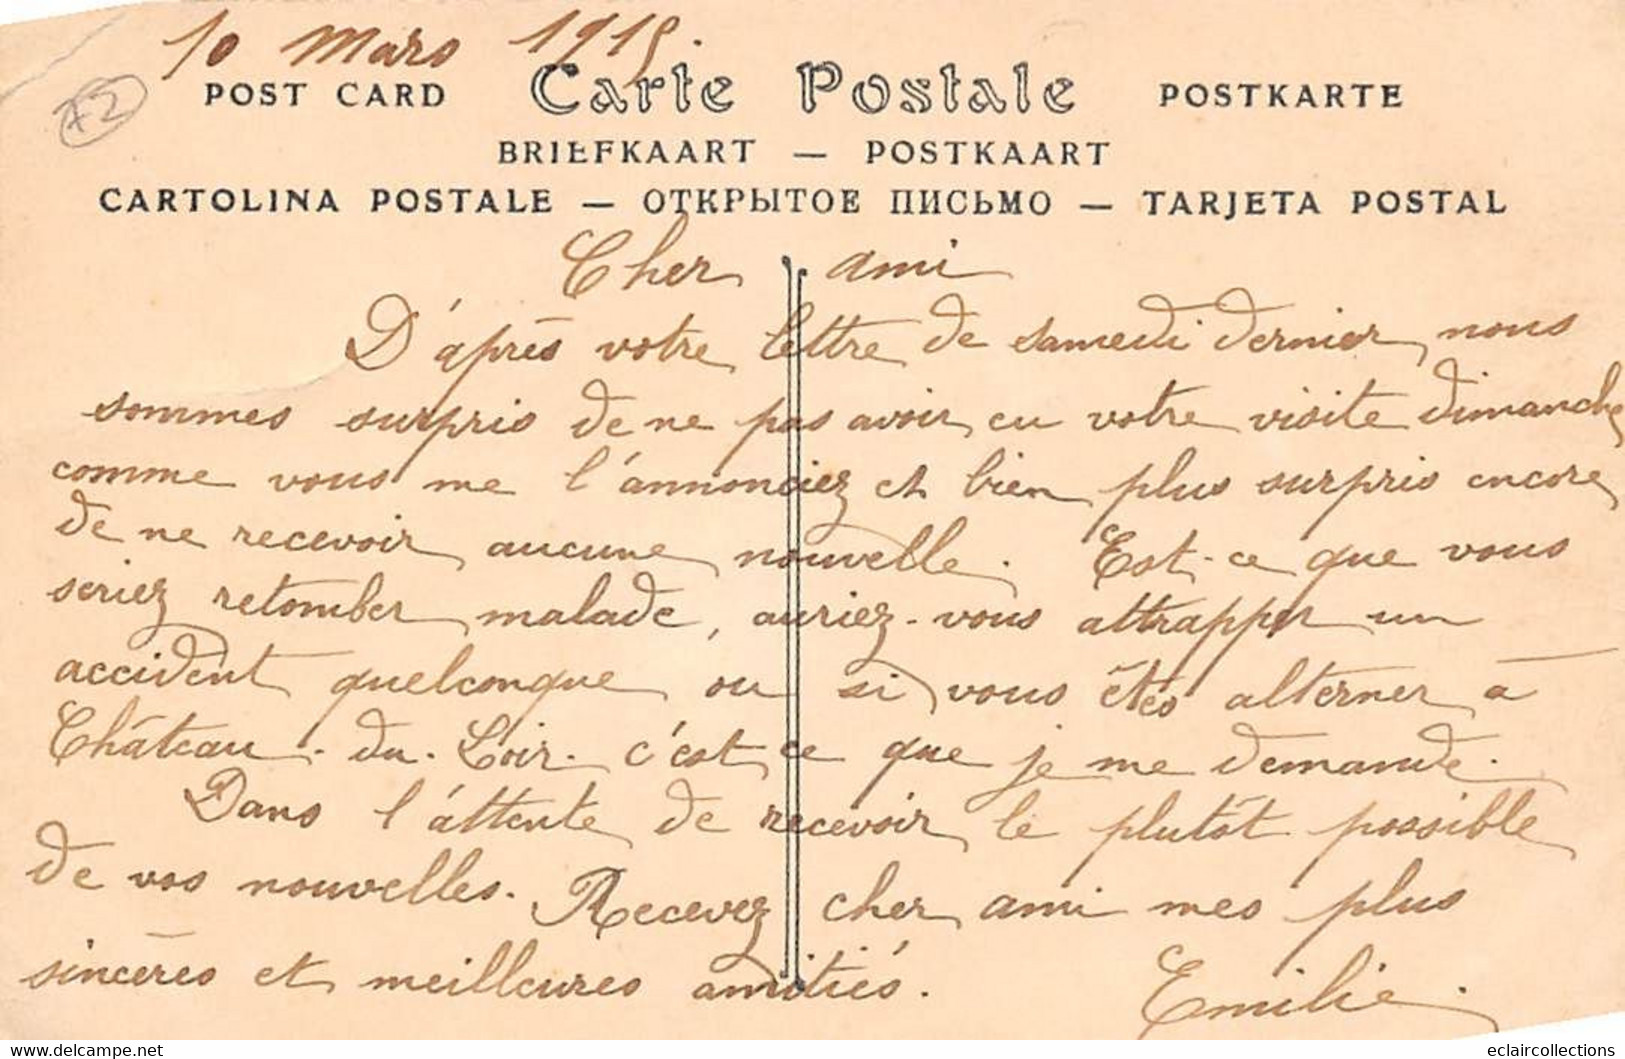 10 Mars 1915.
72
POST CARD Carte Postale POSTKARTE
BRIEFKAART — POSTKAART
CARTOLINA POSTALE — ОТКРЫТОЕ ПИСЬМО — TARJETA POSTAL
Cher ami
D'après votre lettre de samedi dernier, nous
sommes surpris de ne pas avoir eu votre visite dimanche
comme vous me l'annonciez et bien plus surpris encore
de ne recevoir aucune nouvelle. Est-ce que vous
seriez retomber malade, auriez-vous attrapper un
accident quelconque ou si vous êtes alterner à
Château-du-Loir. c'est ce que je me demande.
Dans l'attente de recevoir le plutôt possible
de vos nouvelles. Recevez cher ami mes plus
sincères et meilleures amitiés.
Emilie.
www.delcampe.net
eclaircollections